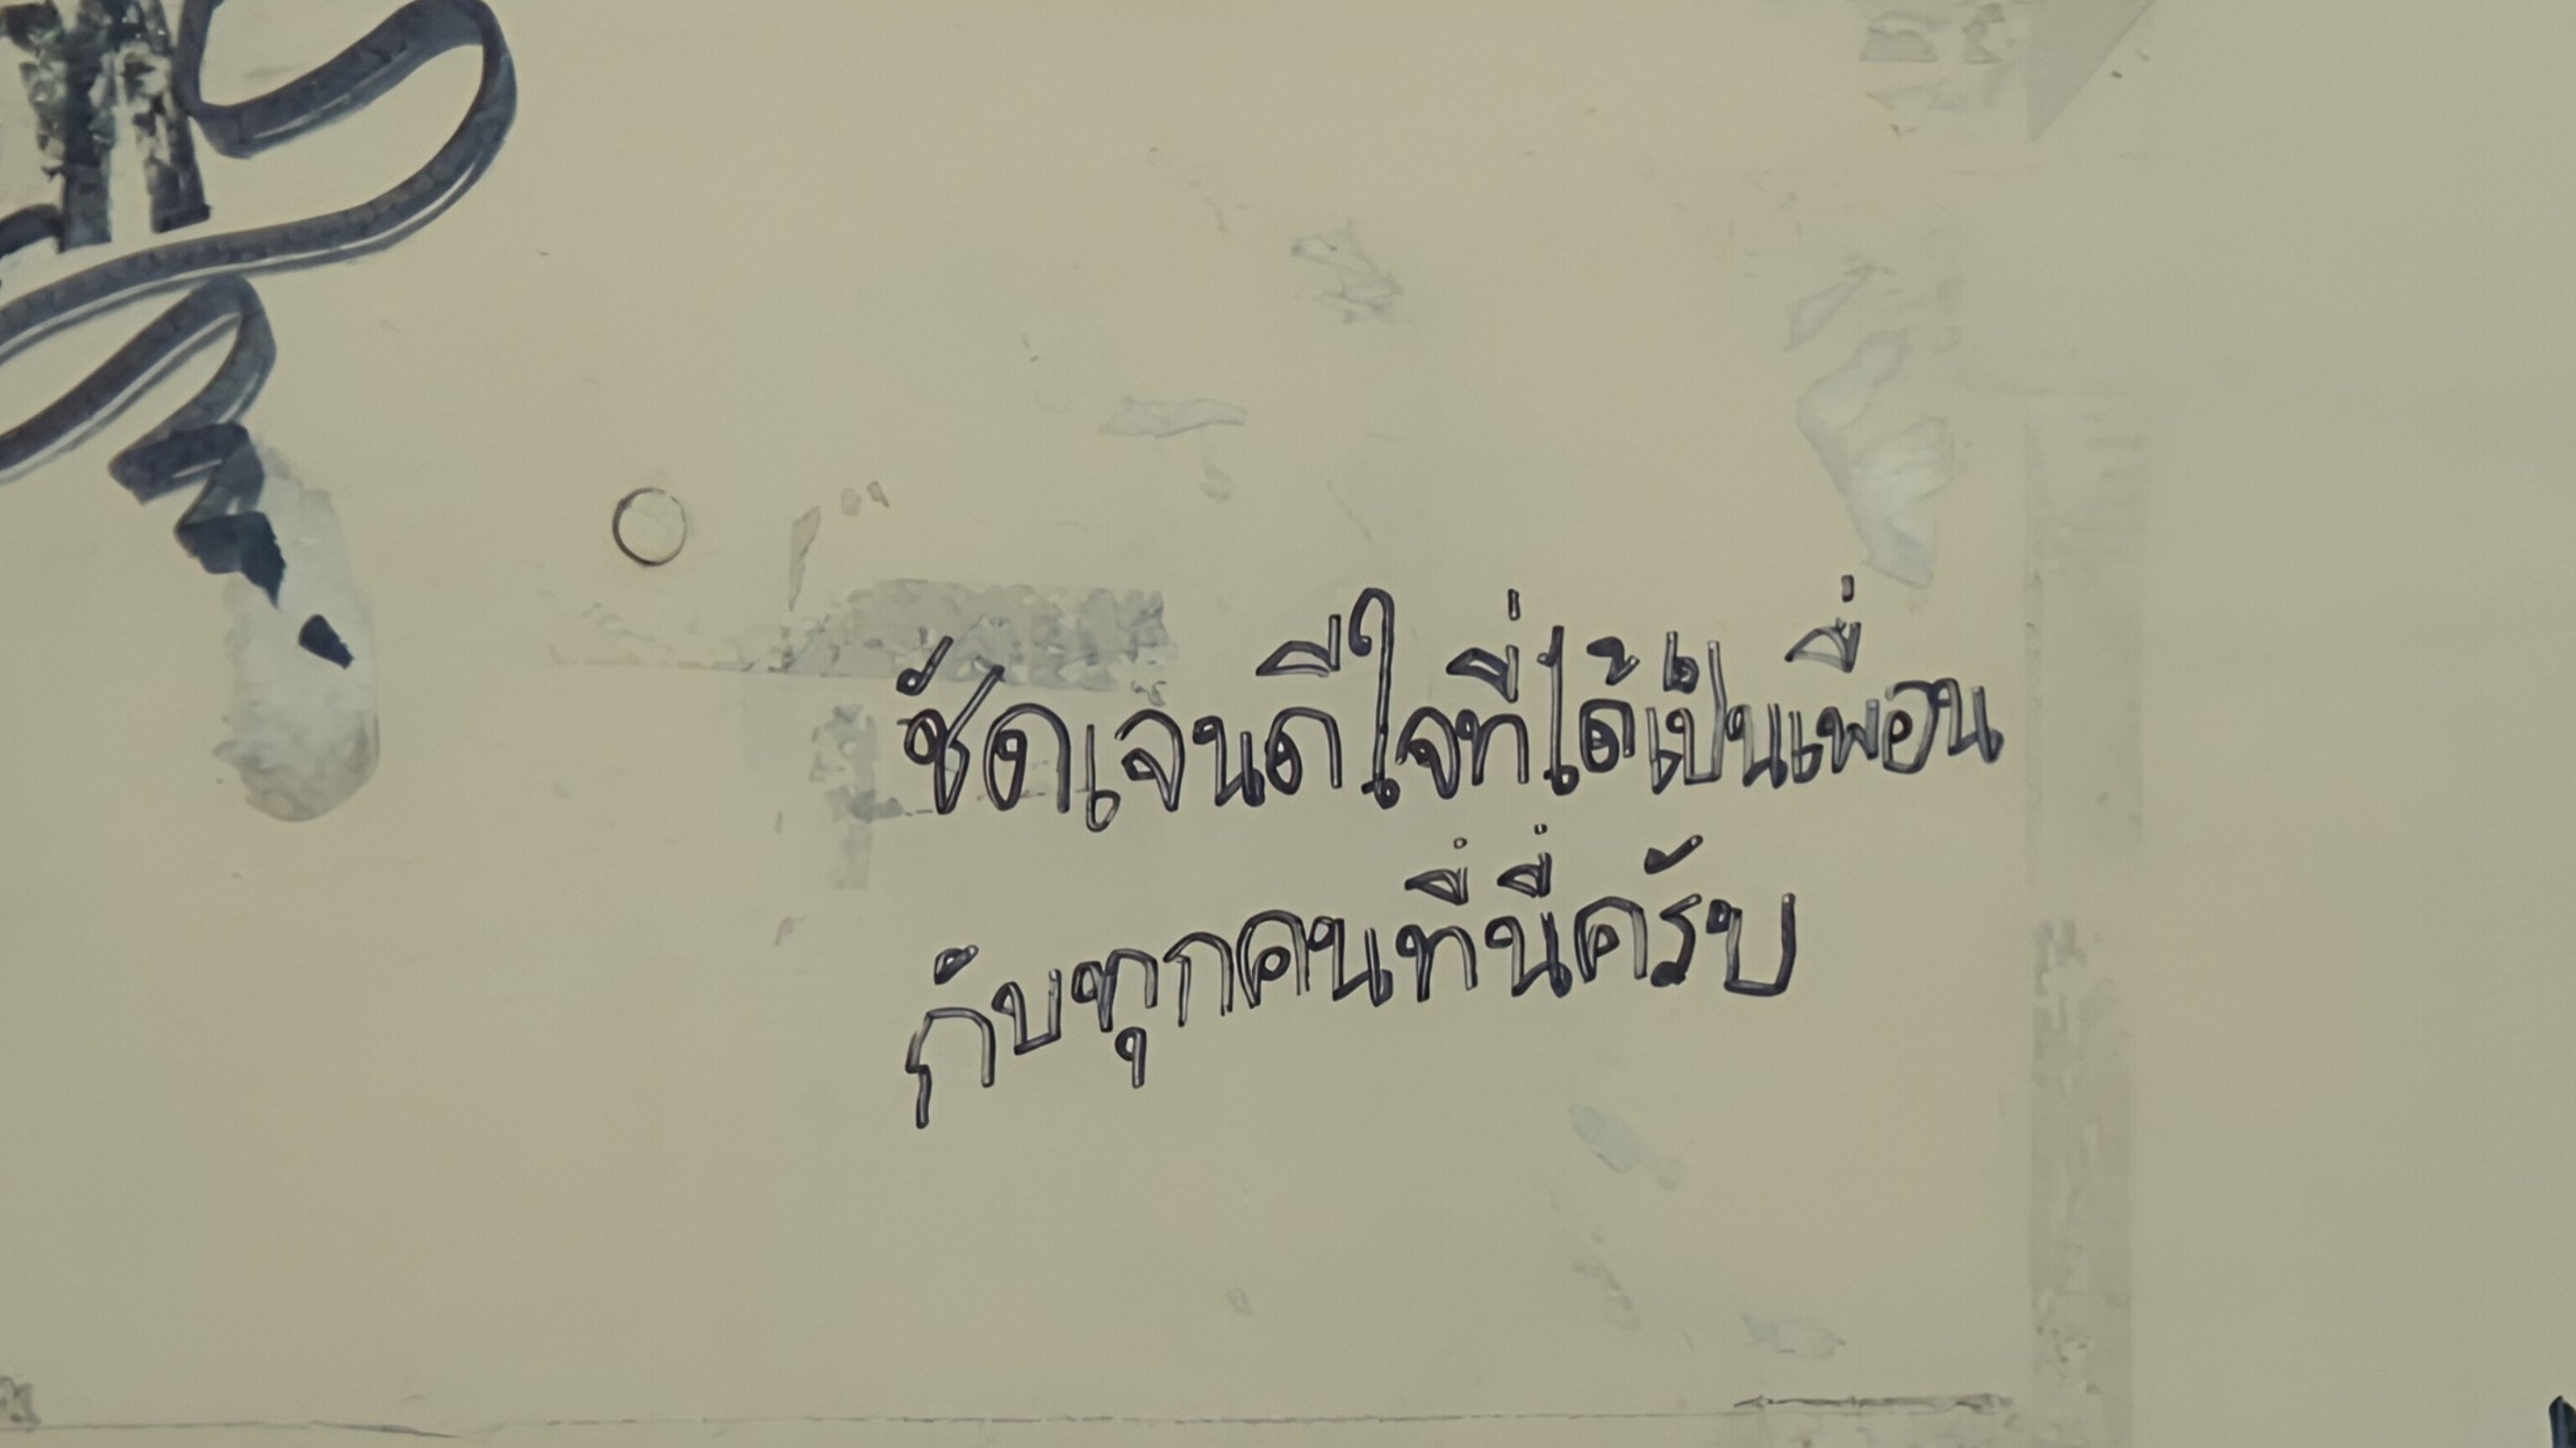 ชัดเจนดีใจที่ได้เป็นเพื่อน
กับทุกคนที่นี่ครับ